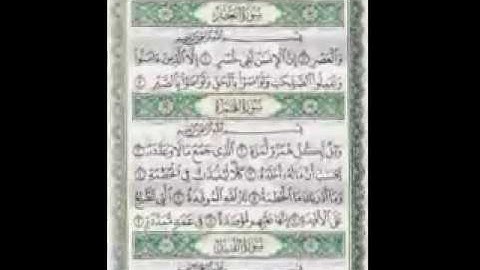 سورة العصر
بسم الله الرحمن الرحيم
وَالْعَصْرِ ۝١ إِنَّ الْإِنسَانَ لَفِي خُسْرٍ ۝٢ إِلَّا الَّذِينَ آمَنُوا
وَعَمِلُوا الصَّالِحَاتِ وَتَوَاصَوْا بِالْحَقِّ وَتَوَاصَوْا بِالصَّبْرِ ۝٣
سورة الهمزة
بسم الله الرحمن الرحيم
وَيْلٌ لِّكُلِّ هُمَزَةٍ لُّمَزَةٍ ۝١ الَّذِي جَمَعَ مَالًا وَعَدَّدَهُ ۝٢
يَحْسَبُ أَنَّ مَالَهُ أَخْلَدَهُ ۝٣ كَلَّا لَيُنبَذَنَّ فِي الْحُطَمَةِ ۝٤
وَمَا أَدْرَاكَ مَا الْحُطَمَةُ ۝٥ نَارُ اللَّهِ الْمُوقَدَةُ ۝٦ الَّتِي تَطَّلِعُ
عَلَى الْأَفْئِدَةِ ۝٧ إِنَّهَا عَلَيْهِم مُّؤْصَدَةٌ ۝٨ فِي عَمَدٍ مُّمَدَّدَةٍ ۝٩
سورة الفيل